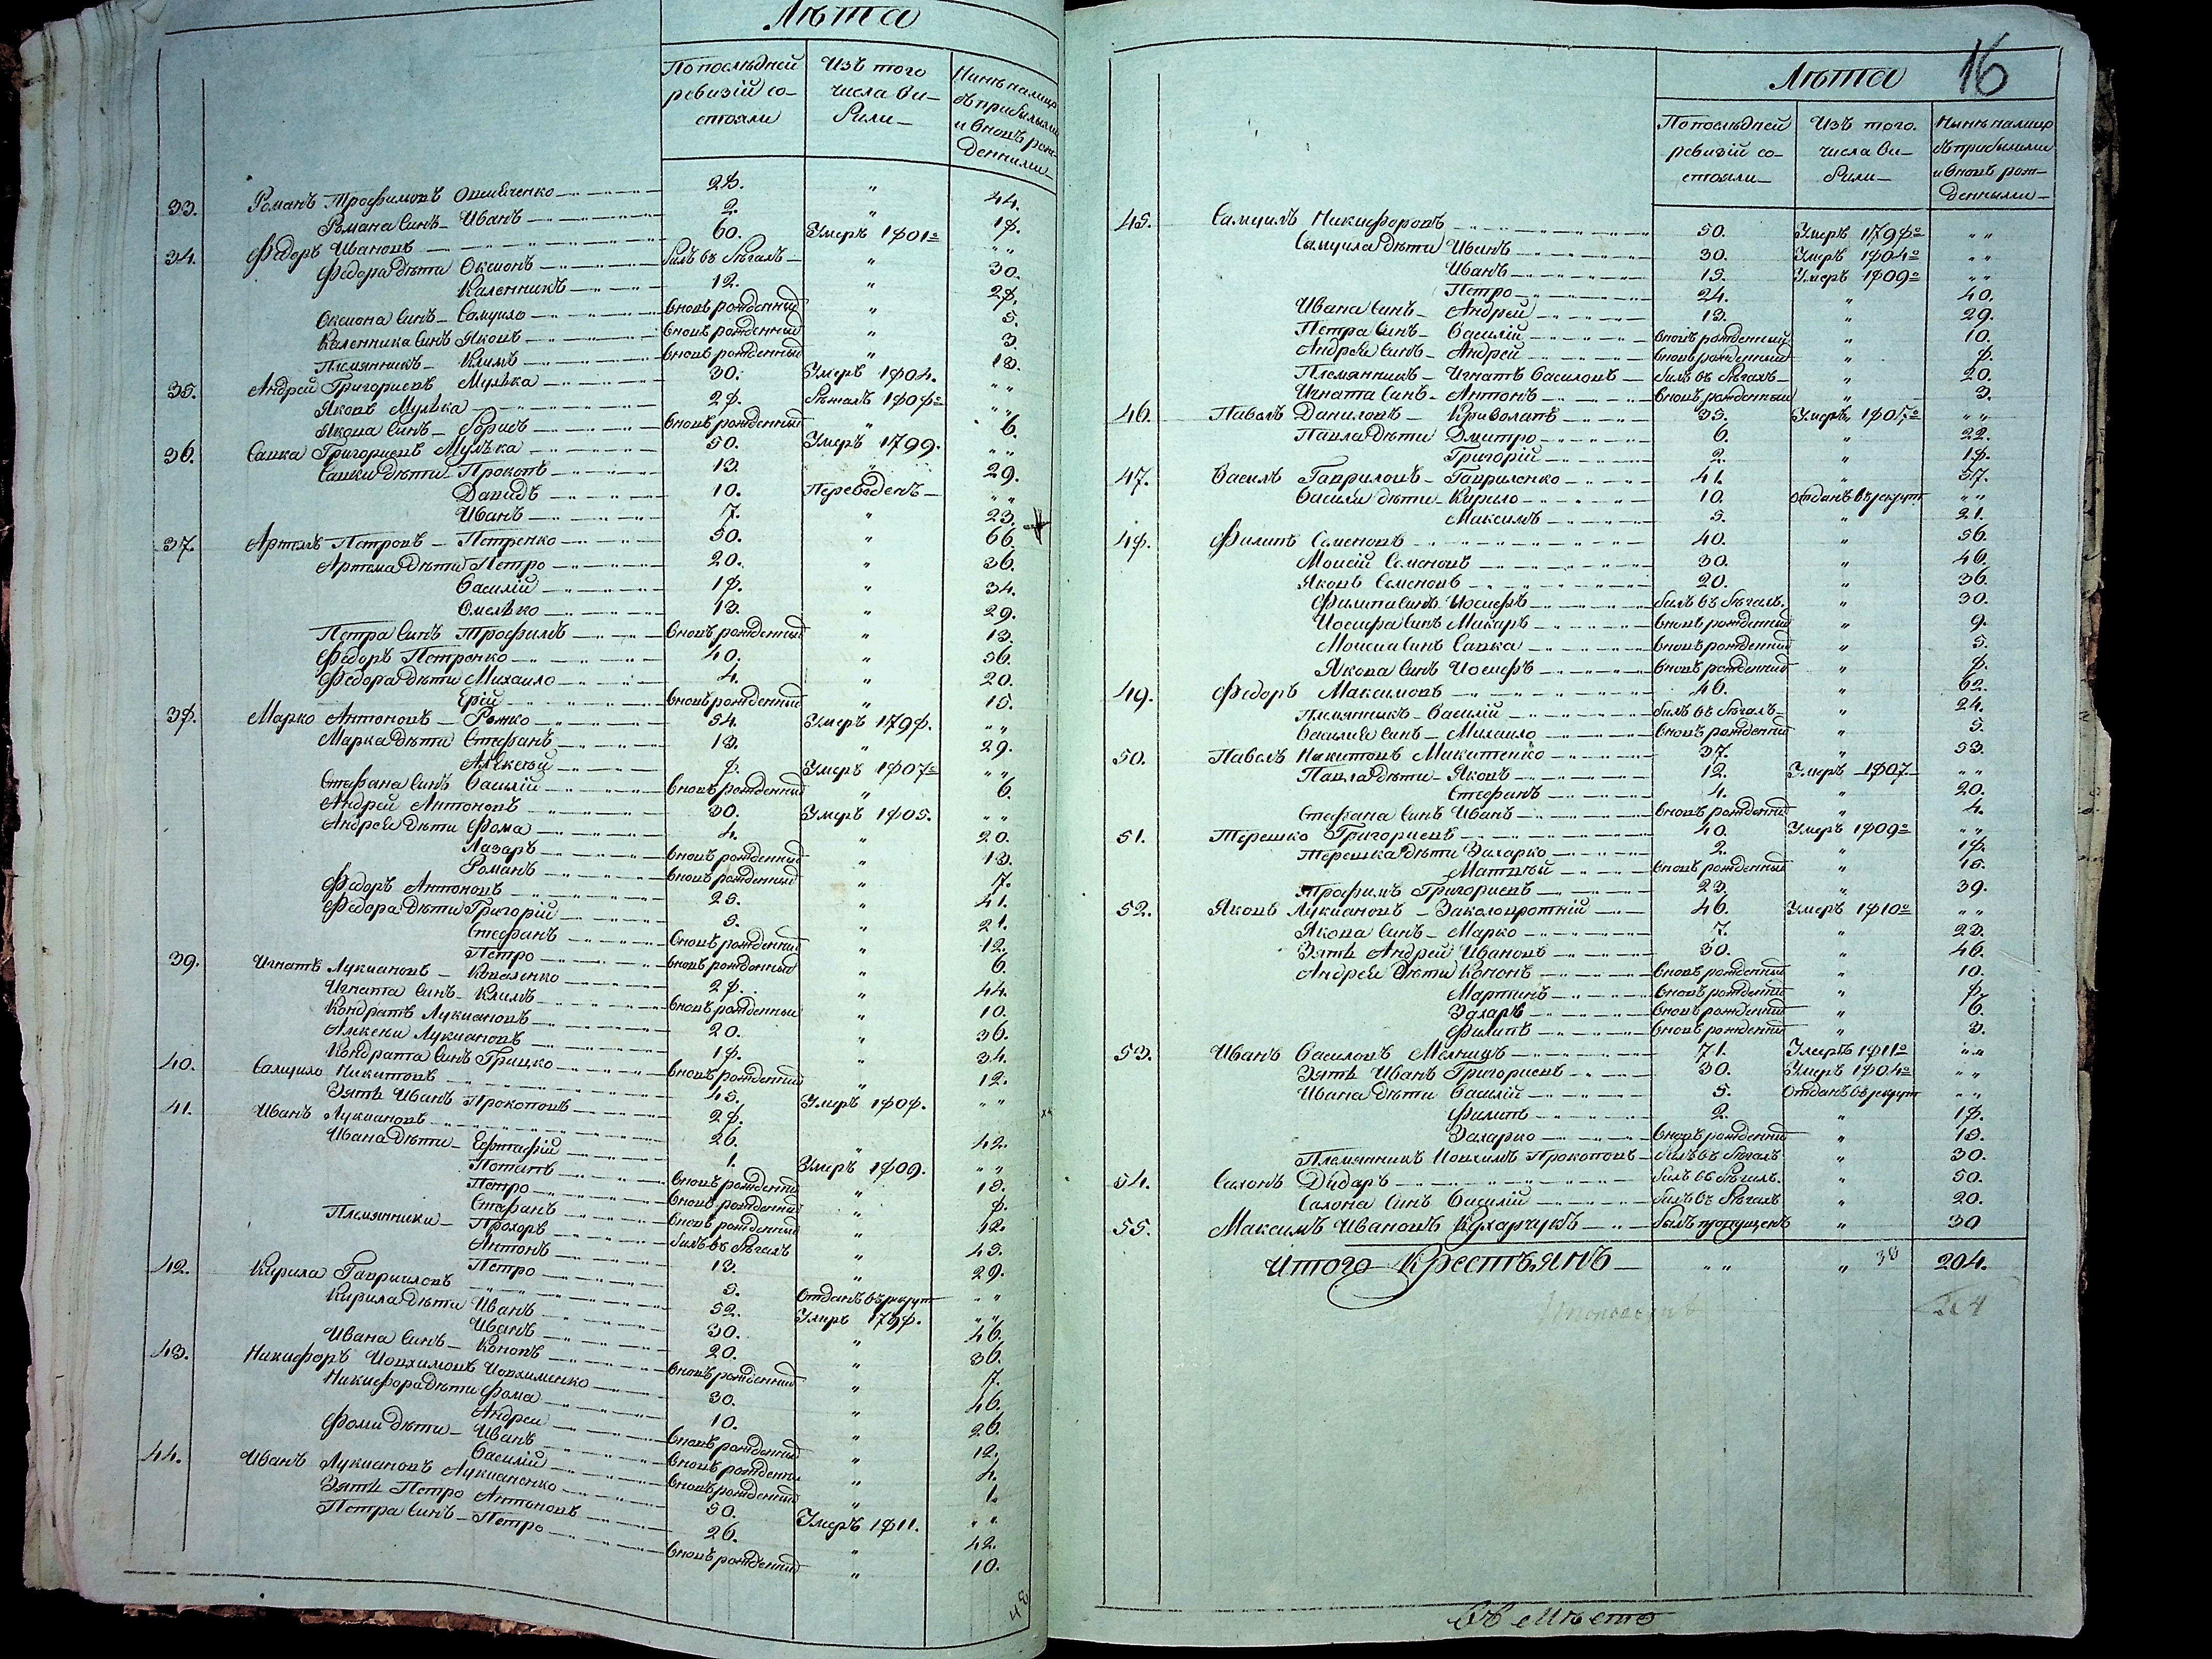 Лѣта
По послѣдней ревизій состояли
Изъ того числа выбыли
Нынѣ налицо съ прибылыми и вновь рожденными
33. Романъ Трофимовъ 28. " 44.
Романа Синъ Иванъ 2. " 18.
34. Федоръ Ивановъ 60. Умеръ 1801го " "
Федора дѣти Оксионъ билъ въ бѣгахъ " 30.
Каленникъ 12. " 28.
Оксиона Синъ Самуило вновь рожденный " 5.
Каленника Синъ Яковъ вновь рожденный " 3.
Племянникъ Климъ вновь рожденный " 13.
35. Андрей Григориевъ Мулѣка 30. Умеръ 1804. " "
Яковъ Мулѣка 28. бѣжалъ 1808го " "
Якова Синъ Борисъ вновь рожденный " 6.
36. Савка Григориевъ Мулѣка 50. Умеръ 1799. " "
Савки дѣти Прокопъ 13. " 29.
Давидъ 10. Переведенъ " "
Иванъ 7. " 23.
37. Артемъ Петровъ Петренко 50. " 66.
Артема дѣти Петро 20. " 36.
Василій 18. " 34.
Омелѣко 13. " 29.
Петра Синъ Трофимъ вновь рожденный " 13.
Федоръ Петренко 40. " 56.
Федора дѣти Михаило 4. " 20.
Ерій вновь рожденный " 15.
38. Марко Антоновъ Рожко 54. Умеръ 1798. " "
Марка дѣти Стефанъ 13. " 29.
Алѣксѣй 8. Умеръ 1807го " "
Стефана Синъ Василій вновь рожденный " 6.
Андрей Антоновъ 30. Умеръ 1805. " "
Андрея дѣти Фома 4. " 20.
Лазаръ вновь рожденный " 13.
Романъ вновь рожденный " 7.
Федоръ Антоновъ 25. " 41.
Федора дѣти Григорій 5. " 21.
Стефанъ вновь рожденный " 12.
Петро вновь рожденный " 6.
39. Игнатъ Лукиановъ Коваленко 28. " 44.
Игната Синъ Климъ вновь рожденный " 10.
Кондратъ Лукиановъ 20. " 36.
Алексей Лукиановъ 18. " 34.
Кондрата Синъ Грицко вновь рожденный " 12.
40. Самуило Никитовъ 45. Умеръ 1808. " "
Зять Иванъ Прокоповъ 28.
41. Иванъ Лукиановъ 26. " 42.
Ивана дѣти Евстафій 1. Умеръ 1809. " "
Потапъ вновь рожденный " 13.
Петро вновь рожденный " 8.
Стефанъ вновь рожденный " 12.
Племянники Прохоръ билъ въ бѣгахъ " 45.
Антонъ 13. " 29.
Петро 5. Отданъ въ рекрут " "
42. Кирила Гаврииловъ 52. Умеръ 1798. " "
Кирила дѣти Иванъ 30. " 46.
Иванъ 20. " 36.
Ивана Синъ Кононъ вновь рожденный " 7.
43. Никифоръ Иовхимовъ Иовхименко 30. " 46.
Никифора дѣти Фома 10. " 26.
Андрей вновь рожденный " 12.
Фоми дѣти Иванъ вновь рожденны " 4.
Василій вновь рожденний " 1.
44. Иванъ Лукиановъ Лукианенко 50. Умеръ 1811. " "
Зять Петро Антоновъ 26. " 42.
Петра Синъ Петро вновь рожденний " 10.
48
16
Лѣта
По послѣдней ревизій состояли
Изъ того числа выбыли
Нынѣ налицо съ прибылыми и вновь рожденными
45. Самуилъ Никифоровъ 50. Умеръ 1798го " "
Самуила дѣти Иванъ 30. Умеръ 1804го " "
Иванъ 15. Умеръ 1809го " "
Петро 24. " 40.
Ивана Синъ Андрей 13. " 29.
Петра Синъ Василій вновь рожденный " 10.
Андрея Синъ Андрей вновь рожденный " 8.
Племянникъ Игнатъ Василовъ билъ въ бѣгахъ " 20.
Игната Синъ Антонъ вновь рожденный " 3.
46. Павелъ Даниловъ Криволапъ 35. Умеръ 1807го " "
Павла дѣти Дмитро 6. " 22.
Григорій 2. " 18.
47. Василъ Гавриловъ Гавриленко 41. " 57.
Василя дѣти Кирило 10. отданъ въ рекрут " "
Максимъ 5. " 21.
48. Филипъ Семеновъ 40. " 56.
Моисій Семеновъ 30. " 46.
Яковъ Семеновъ 20. " 36.
Филипа Синъ Иосифъ билъ въ бѣгахъ " 30.
Иосифа Синъ Макаръ вновь рожденний " 9.
Моисия Синъ Савка вновь рожденний " 5.
Якова Синъ Иосифъ вновь рожденний " 8.
49. Федоръ Максимовъ 46. " 62.
Племянникъ Василій билъ въ бѣгахъ " 24.
Василія Синъ Михаило вновь рожденний " 5.
50. Павелъ Никитовъ Микитенко 37. " 53.
Павла дѣти Яковъ 12. Умеръ 1807 " "
Стефанъ 4. " 20.
Стефана Синъ Иванъ вновь рожденний " 4.
51. Терешко Григориевъ 40. Умеръ 1809го " "
Терешка дѣти Захарко 2. " 18.
Матвѣй вновь рожденний " 15.
Трофимъ Григориевъ 23. " 39.
52. Яковъ Лукиановъ Заколовротній 46. Умеръ 1810го " "
Якова Синъ Марко 7. " 23.
Зять Андрей Ивановъ 30. " 46.
Андрея дѣти Кононъ вновь рожденний " 10.
Мартинъ вновь рожденний " 8.
Захаръ вновь рожденний " 6.
Филипъ вновь рожденний " 3.
53. Иванъ Василовъ Мелникъ 71. Умеръ 1811го " "
Зять Иванъ Григориевъ 30. Умеръ 1804го " "
Ивана дѣти Василій 5. Отданъ въ рекрут " "
Филипъ 2. " 18.
Захарко вновь рожденний " 13.
Племянникъ Иовхимъ Прокоповъ билъ въ бѣгахъ " 30.
54. Сахонъ Дидаръ билъ въ бѣгахъ " 50.
Сахона Синъ Василій билъ въ бѣгахъ " 20.
55. Максимъ Ивановъ Кухарчукъ былъ пропущенъ " 30
Итого Крестьянъ " " " 38 204.
Въ мѣсто